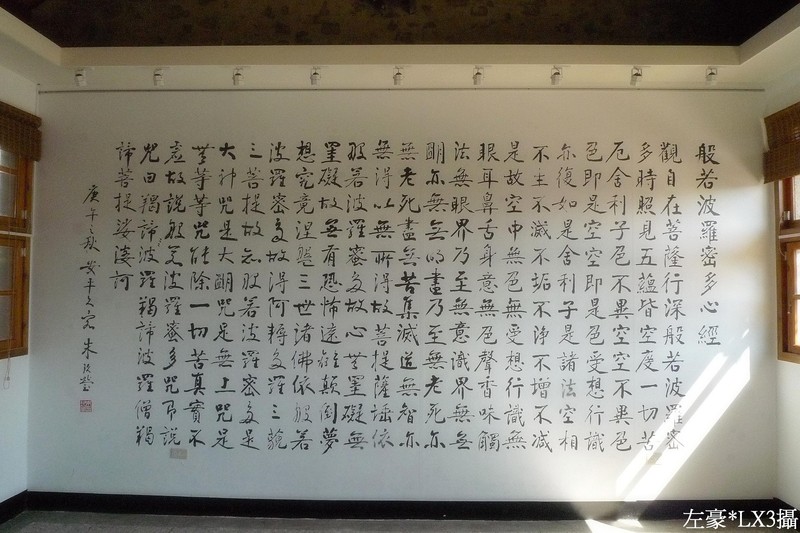 般若波羅密多心經
觀自在菩薩行深般若波羅密
多時照見五蘊皆空度一切苦
厄舍利子色不異空空不異色
色即是空空即是色受想行識
亦復如是舍利子是諸法空相
不生不滅不垢不淨不增不減
是故空中無色無受想行識無
眼耳鼻舌身意無色聲香味觸
法無眼界乃至無意識界無無
明亦無無明盡乃至無老死亦
無老死盡無苦集滅道無智亦
無得以無所得故菩提薩埵依
般若波羅蜜多故心無罣礙無
罣礙故無有恐怖遠離顛倒夢
想究竟涅槃三世諸佛依般若
波羅密多故得阿耨多羅三藐
三菩提故知般若波羅密多是
大神咒是大明咒是無上咒是
無等等咒能除一切苦真實不
虛故說般若波羅蜜多咒即說
咒曰羯諦波羅羯諦波羅僧羯
諦菩提娑婆訶
庚午之秋安平久客朱玖瑩
左豪*LX3攝